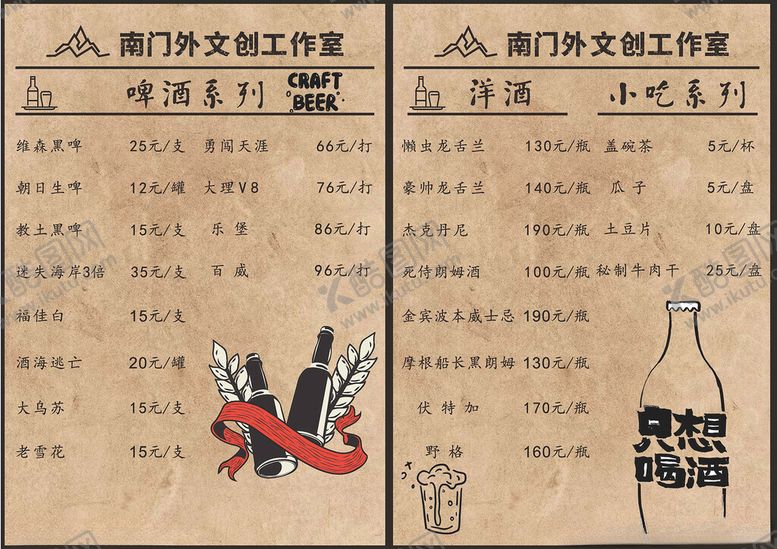 南门外文创工作室
啤酒系列 CRAFT BEER
维森黑啤 25元/支 勇闯天涯 66元/打
朝日生啤 12元/罐 大理V8 76元/打
教士黑啤 15元/支 乐堡 86元/打
迷失海岸3倍 35元/支 百威 96元/打
福佳白 15元/支
酒海逃亡 20元/罐
大乌苏 15元/支
老雪花 15元/支
南门外文创工作室
洋酒 小吃系列
懒虫龙舌兰 130元/瓶 盖碗茶 5元/杯
豪帅龙舌兰 140元/瓶 瓜子 5元/盘
杰克丹尼 190元/瓶 土豆片 10元/盘
死侍朗姆酒 100元/瓶 秘制牛肉干 25元/盘
金宾波本威士忌 190元/瓶
摩根船长黑朗姆 130元/瓶
伏特加 170元/瓶
野格 160元/瓶
只想
喝酒